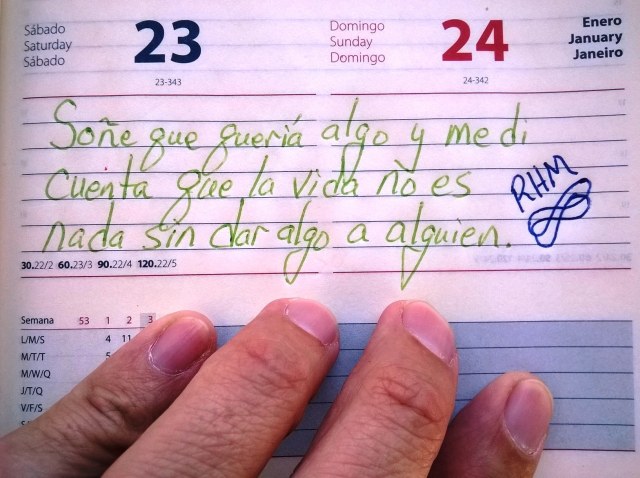 Sábado
Saturday
Sábado
23
23-343
Domingo
Sunday
Domingo
24
24-342
Enero
January
Janeiro
Soñe que queria algo y me di
cuenta que la vida no es
nada sin dar algo a alguien.
RHM
30.22/2 60.23/3 90.22/4 120.22/5
Semana 53 1 2 3
L/M/S 4 11
M/T/T 5
M/W/Q
J/T/Q
V/F/S